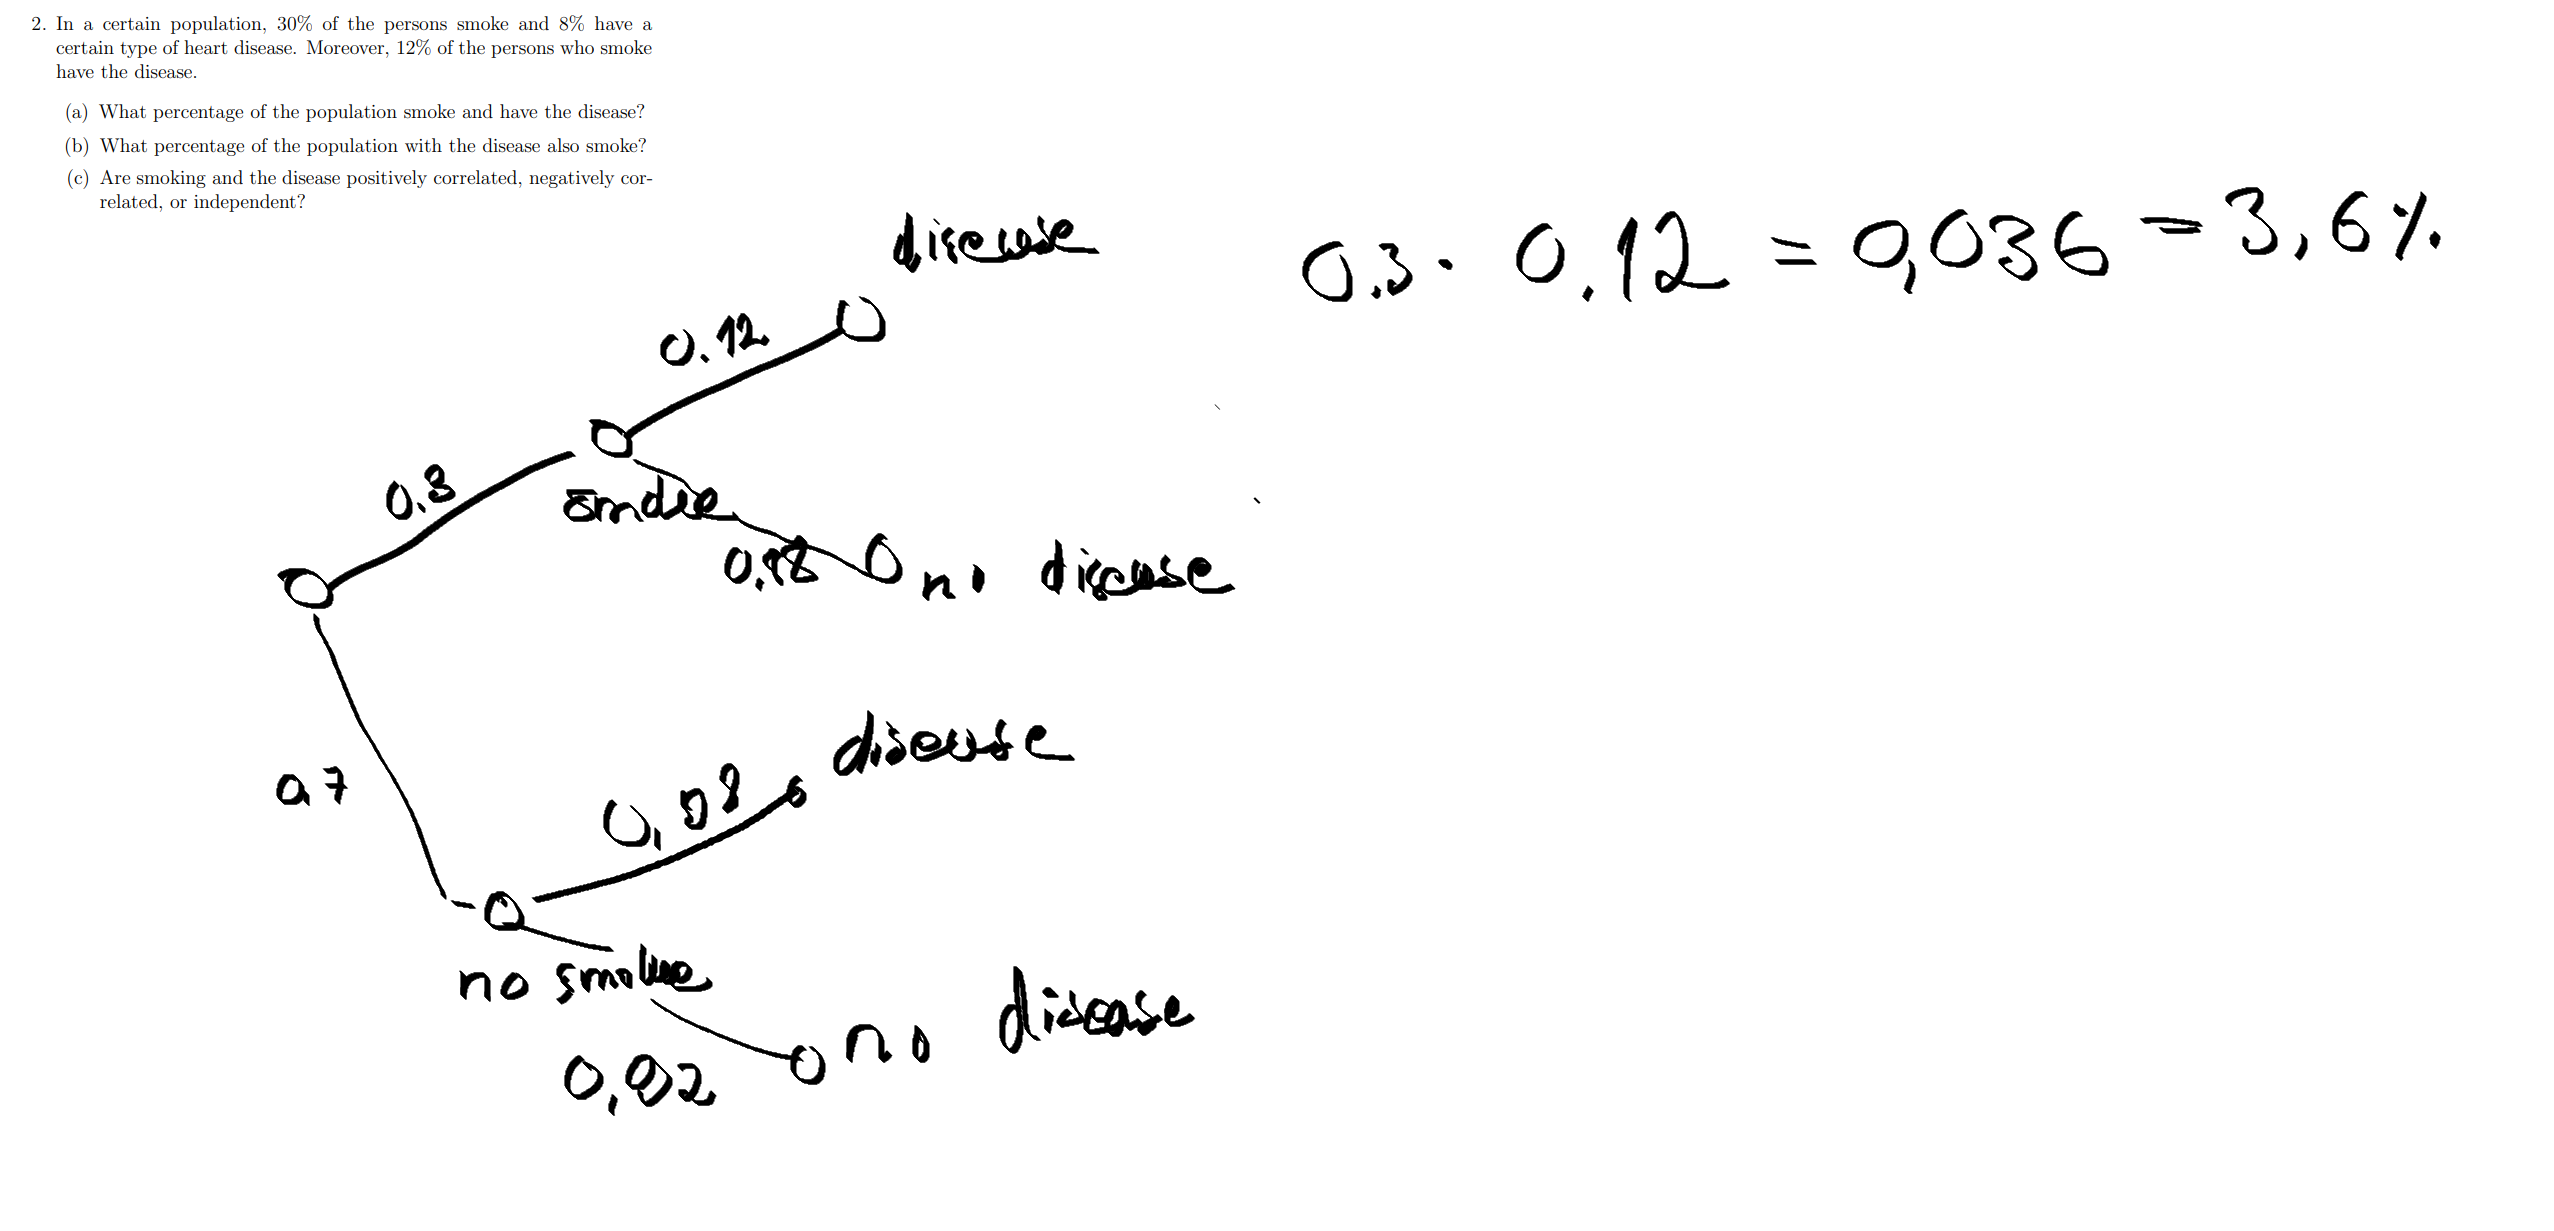 2. In a certain population, 30% of the persons smoke and 8% have a
certain type of heart disease. Moreover, 12% of the persons who smoke
have the disease.
(a) What percentage of the population smoke and have the disease?
(b) What percentage of the population with the disease also smoke?
(c) Are smoking and the disease positively correlated, negatively cor-
related, or independent?
disease
0.3 · 0.12 = 0,036 = 3,6%
0.12
0.3
smoke
no disease
0,7
disease
0,08
no smoke
no disease